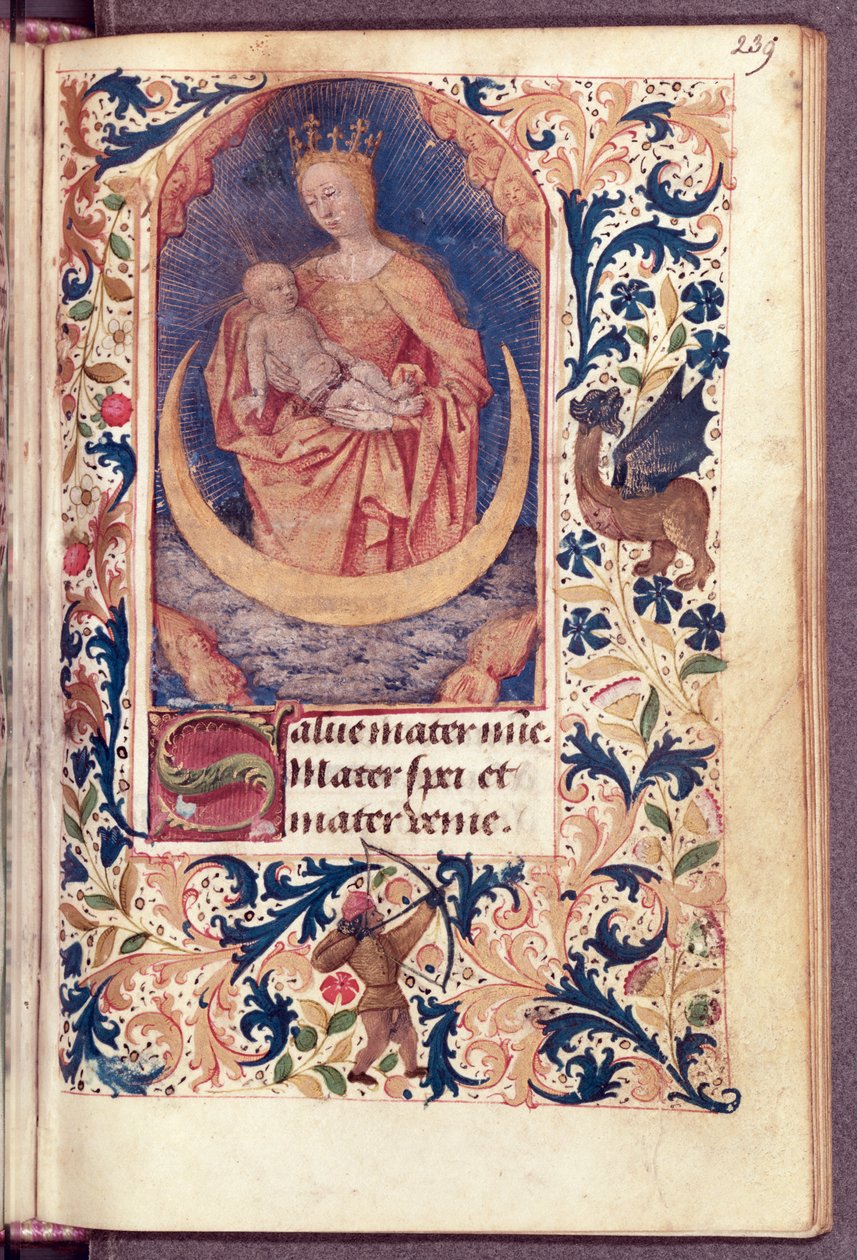 239
Salue mater mīe.
Mater spei et
mater venie.